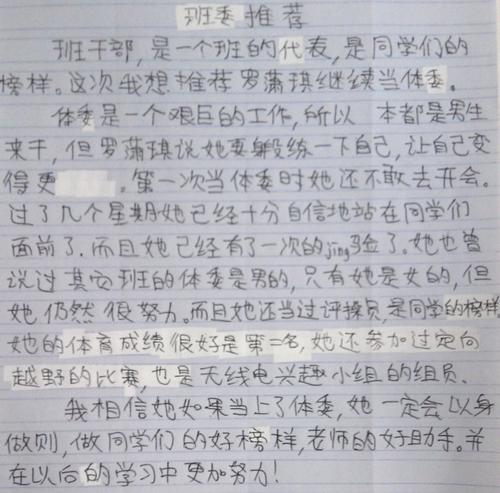 班委推荐
班干部，是一个班的代表，是同学们的
榜样。这次我想推荐罗蒲琪继续当体委。
体委是一个艰巨的工作，所以 本都是男生
来干，但罗蒲琪说她要锻练一下自己，让自己变
得更 。第一次当体委时她还不敢去开会。
过了几个星期她已经十分自信地站在同学们
面前了．而且她已经有了一次的jing验了。她也曾
说过其它班的体委是男的，只有她是女的，但
她仍然很努力。而且她还当过评操员，是同学的榜样，
她的体育成绩很好是第二名，她还参加过定向
越野的比赛，也是无线电兴趣小组的组员．
我相信她如果当上了体委，她一定会以身
做则，做同学们的好榜样，老师的好助手。并
在以后的学习中更加努力！